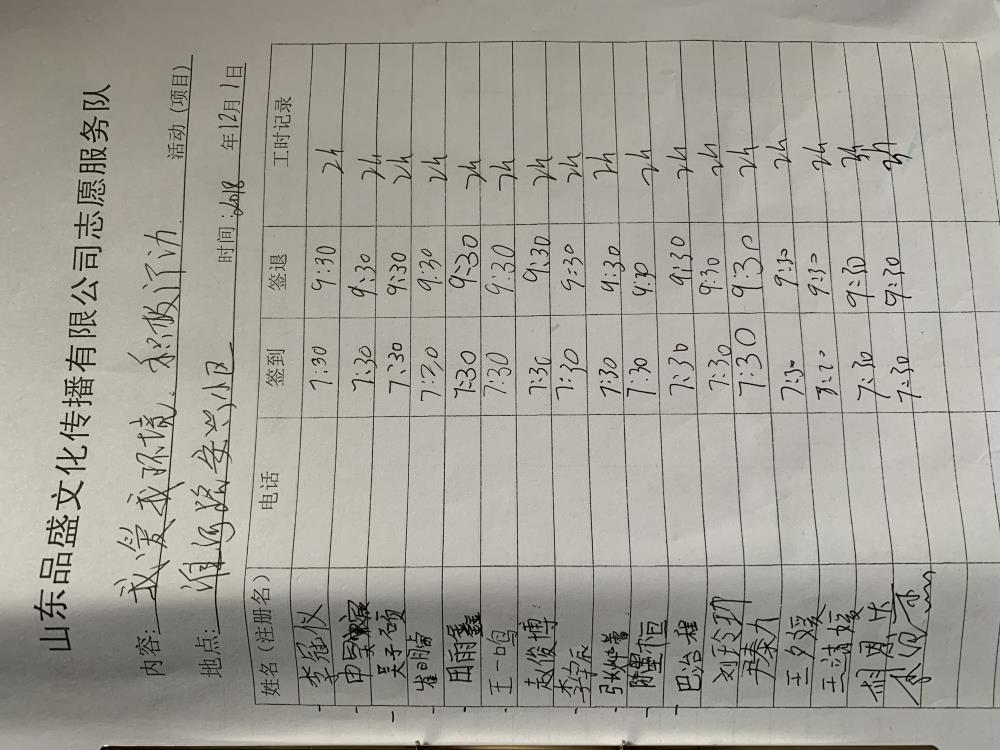 山东品盛文化传播有限公司志愿服务队
内容：我爱我环境 积极行动 活动（项目）
地点：淮河路安兴小区 时间：2018年12月1日
姓名（注册名） 电话 签到 签退 工时记录
李冠仪 7:30 9:30 2h
申 7:30 9:30 2h
吴子硕 7:30 9:30 2h
崔明 7:30 9:30 2h
田雨鑫 7:30 9:30 2h
王一鸣 7:30 9:30 2h
赵俊博 7:30 9:30 2h
李宇辰 7:30 9:30 2h
张 7:30 9:30 2h
陈星恒 7:30 9:30 2h
巴冶程 7:30 9:30 2h
刘玲玲 7:30 9:30 2h
尹秦力 7:30 9:30 2h
王夕媛 7:30 9:30 2h
王清媛 9:30 2h
7:30 9:30 2h
7:30 9:30 2h